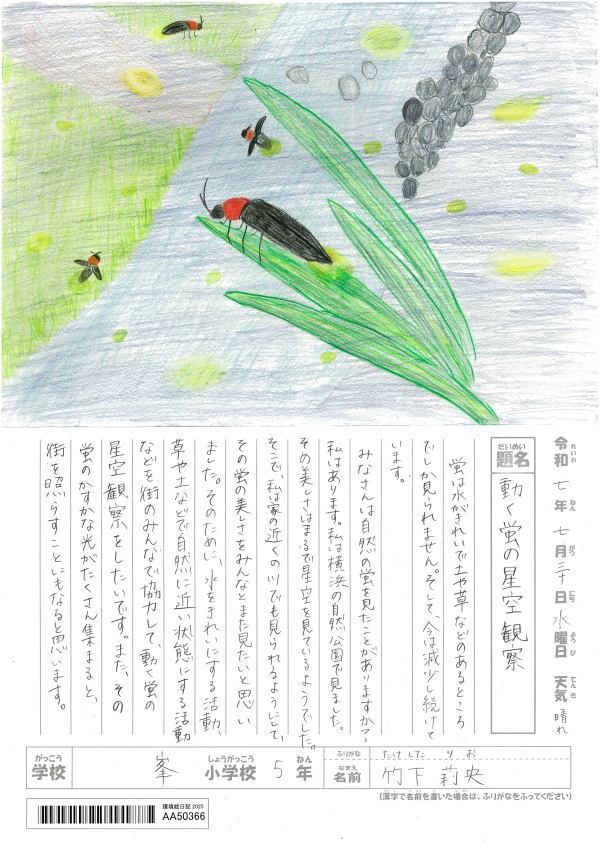 令和七年七月三十日水曜日 天気 晴れ
れいわ ねん がつ にち ようび てんき
題名 動く蛍の星空観察
だいめい
蛍は水がきれいで土や草などのあるところ
でしか見られません。そして、今は減少し続けて
います。
みなさんは自然の蛍を見たことがありますか?
私はあります。私は横浜の自然公園で見ました。
その美しさはまるで星空を見ているようでした。
そこで、私は家の近くの川でも見られるようにして、
その蛍の美しさをみんなとまた見たいと思い
ました。そのために、水をきれいにする活動、
草や土などで自然に近い状態にする活動
などを街のみんなで協力して、動く蛍の
星空観察をしたいです。また、その
蛍のかすかな光がたくさん集まると、
街を照らすことにもなると思います。
がっこう しょうがっこう ねん ふりがな たけした りお
学校 峯 小学校 5 年 名前 竹下 莉央
なまえ
(漢字で名前を書いた場合は、ふりがなをふってください)
環境絵日記 2025
AA50366